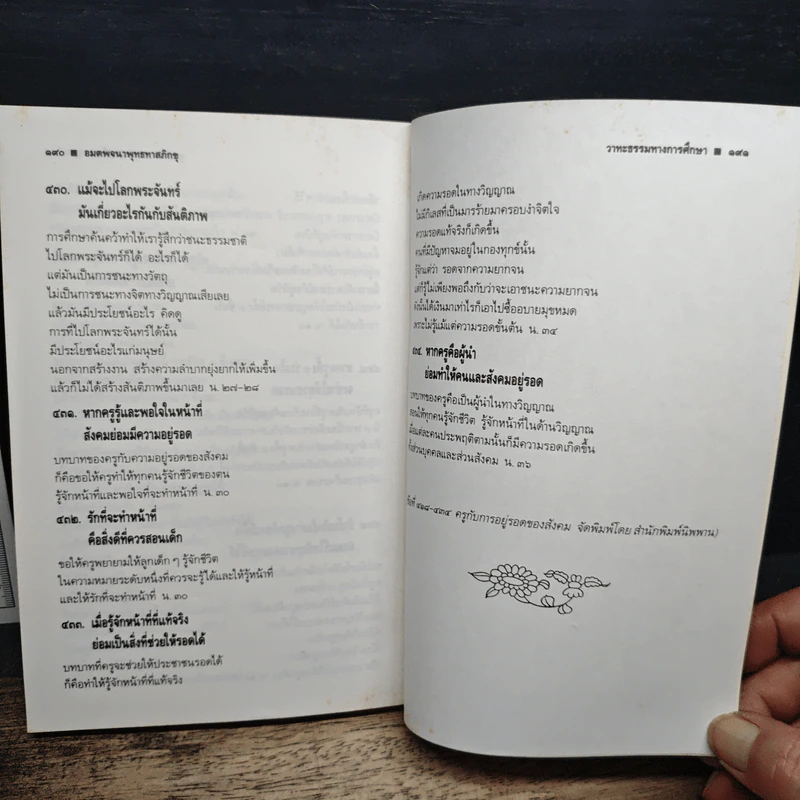 ๑๙๐ ■ อมตพจนาพุทธทาสภิกขุ
๔๓๐. แม้จะไปโลกพระจันทร์
มันเกี่ยวอะไรกันกับสันติภาพ
การศึกษาค้นคว้าทำให้เรารู้สึกว่าชนะธรรมชาติ
ไปโลกพระจันทร์ก็ได้ อะไรก็ได้
แต่มันเป็นการชนะทางวัตถุ
ไม่เป็นการชนะทางจิตทางวิญญาณเสียเลย
แล้วมันมีประโยชน์อะไร คิดดู
การที่ไปโลกพระจันทร์ได้นั้น
มีประโยชน์อะไรแก่มนุษย์
นอกจากสร้างงาน สร้างความลำบากยุ่งยากให้เพิ่มขึ้น
แล้วก็ไม่ได้สร้างสันติภาพขึ้นมาเลย น.๒๗-๒๘
๔๓๑. หากครูรู้และพอใจในหน้าที่
สังคมย่อมมีความอยู่รอด
บทบาทของครูกับความอยู่รอดของสังคม
ก็คือขอให้ครูทำให้ทุกคนรู้จักชีวิตของตน
รู้จักหน้าที่และพอใจที่จะทำหน้าที่ น.๓๐
๔๓๒. รักที่จะทำหน้าที่
คือสิ่งดีที่ควรสอนเด็ก
ขอให้ครูพยายามให้ลูกเด็ก ๆ รู้จักชีวิต
ในความหมายระดับหนึ่งที่ควรจะรู้ได้และให้รู้หน้าที่
และให้รักที่จะทำหน้าที่ น.๓๐
๔๓๓. เมื่อรู้จักหน้าที่ที่แท้จริง
ย่อมเป็นสิ่งที่ช่วยให้รอดได้
บทบาทที่ครูจะช่วยให้ประชาชนรอดได้
ก็คือทำให้รู้จักหน้าที่ที่แท้จริง
วาทะธรรมทางการศึกษา ■ ๑๙๑
เกิดความรอดในทางวิญญาณ
ไม่มีกิเลสที่เป็นมารร้ายมาครอบงำจิตใจ
ความรอดแท้จริงก็เกิดขึ้น
คนที่มีปัญหาจมอยู่ในกองทุกข์นั้น
รู้จักแต่ว่า รอดจากความยากจน
แต่ก็รู้ไม่เพียงพอถึงกับว่าจะเอาชนะความยากจน
ดังนั้นได้เงินมาเท่าไรก็เอาไปซื้ออบายมุขหมด
เพราะไม่รู้แม้แต่ความรอดขั้นต้น น.๓๔
๔๓๔. หากครูคือผู้นำ
ย่อมทำให้คนและสังคมอยู่รอด
บทบาทของครูคือเป็นผู้นำในทางวิญญาณ
สอนให้ทุกคนรู้จักชีวิต รู้จักหน้าที่ในด้านวิญญาณ
เมื่อแต่ละคนประพฤติตามนั้นก็มีความรอดเกิดขึ้น
ทั้งส่วนบุคคลและส่วนสังคม น.๓๖
๔๑๘-๔๓๔ ครูกับการอยู่รอดของสังคม จัดพิมพ์โดย สำนักพิมพ์นิพพาน)